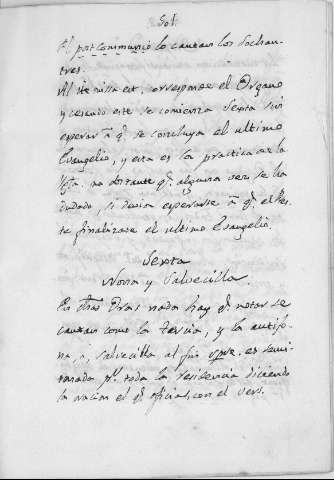 501.
Al postcommunio lo cantan los Sochan-
tres.
Al ite missa est, corresponde el Organo
y cesando este se comienza Sexta sin
esperar à q.e se concluya el ultimo
Evangelio, y esta es la practica de la
Ygla. no obstante q.e alguna vez se ha
dudado, si devia esperarse à q.e el Pes-
te finalizase el ultimo Evangelio.
Sexta
Nona y Salvecilla.
En estas Oras nada hay q.e notar se
cantan como la Tercia, y la antifo-
na, ò, Salvecilla al fin es semi-
tonada p.r toda la residencia diciendo
la oracion el q.e oficia, con el vers.